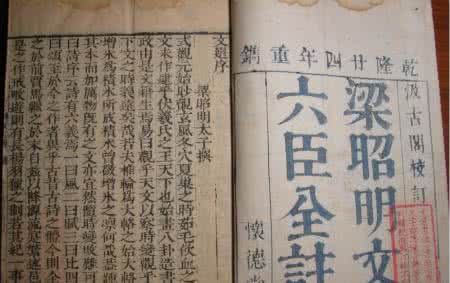 乾隆廿四年重鐫
汲古閣校訂
梁昭明文
六臣全註
懷德堂
文選序
梁昭明太子撰
式觀元始眇覿玄風冬穴夏巢之時茹毛飲血之
文未作逮乎伏羲氏之王天下也始畫八卦造書
政由是文籍生焉易曰觀乎天文以察時變觀乎
下文之時義遠矣哉若夫椎輪為大輅之始大輅
增冰為積水所成積水曾微增冰之凜何哉蓋踵
其本而加厲物既有之文亦宜然隨時變改難可
曰詩序云詩有六義焉一曰風二曰賦三曰比四
曰頌至於今之作者異乎古昔古詩之體今則全
之於前賈馬繼之於末自茲以降源流寔繁述邑
是之作戒畋遊則有長楊羽獵之制若其紀一事